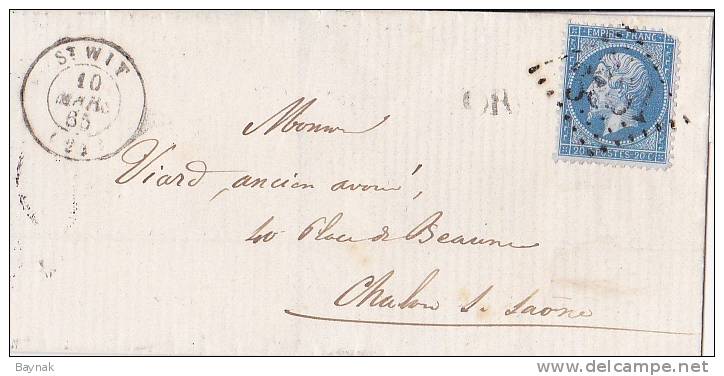 ST WIT
10
MARS
65
(24)
EMPIRE FRANC
20 c POSTES 20 c
OR
Monsieur
Viard, ancien avoué,
40 Place de Beaune
Chalon s. Saône
Baynak
www.delcampe.net